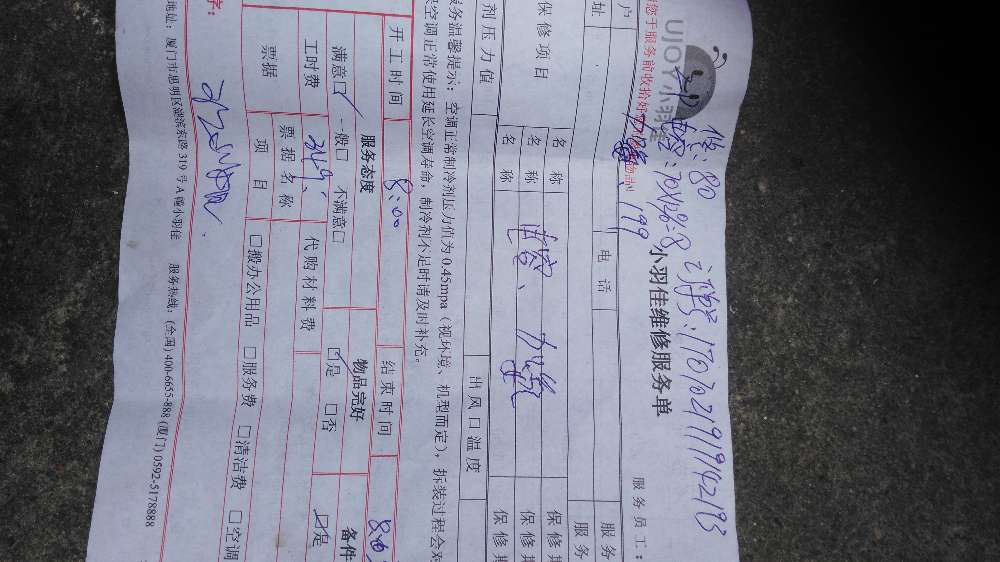 修:80
电容:70X26=8订单号:17070219191942193
加氟:199
UJOY小羽佳
小羽佳维修服务单
服务员工:
您于服务前收拾好
户
址
电话
服务
服务
保修项目
名称
保修期
名称 电容、加氟
保修期
名称
保修期
剂压力值
出风口温度
服务温馨提示:空调正常制冷剂压力值为0.45mpa(视环境、机型而定),拆装过程会对
空调正常使用延长空调寿命,制冷剂不足时请及时补充。
开工时间 8:00 结束时间
服务态度 物品完好 备件
满意□ 一般□ 不满意□ □是 □否 □是
工时费 349. 代购材料费
票据 票据名称
项目 □搬办公用品 □服务费 □清洁费 □空调
字:
地址:厦门市思明区湖滨东路319号A幢小羽佳 服务热线:(全国)400-6655-888(厦门)0592-5178888